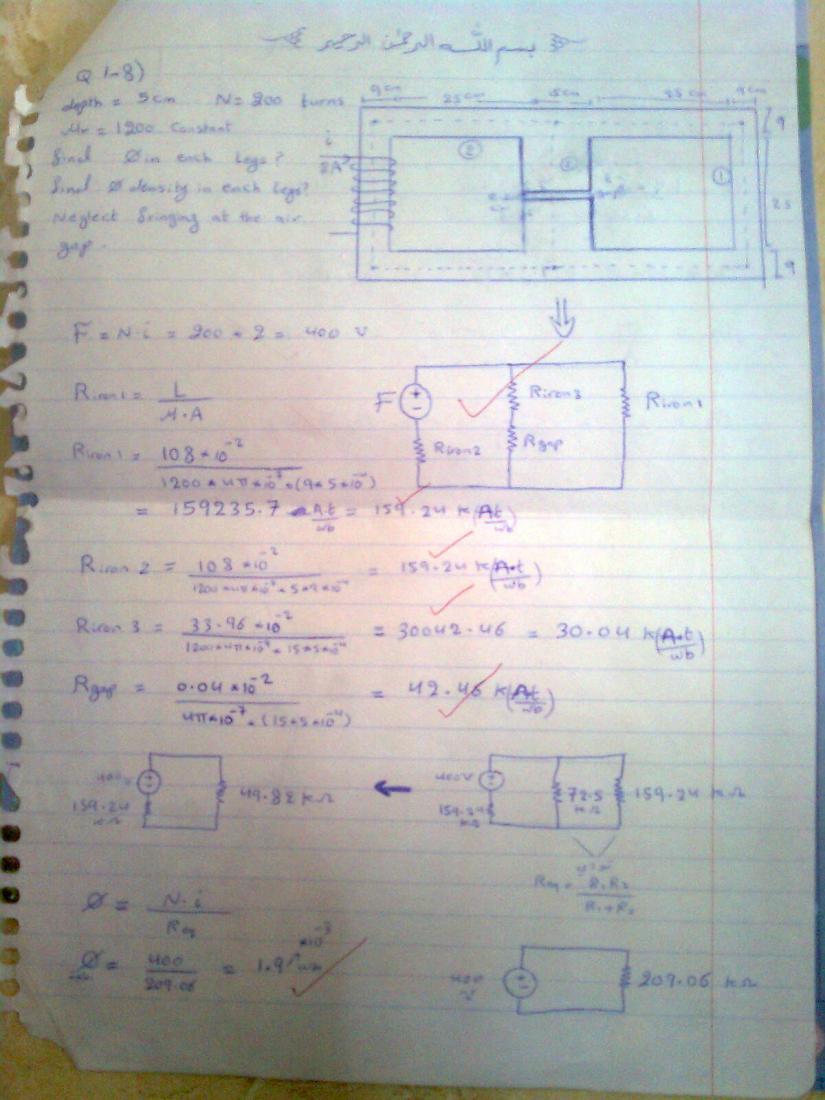 بسم الله الرحمن الرحيم
Q 1-8)
depth = 5cm N = 200 turns
μr = 1200 Constant
find Ø in each legs?
find Ø density in each legs?
Neglect fringing at the air
gap.
9cm 25cm 15cm 25cm 9cm
i
2A
②
③
①
9
25
9
F = N·i = 200 * 2 = 400 V
Riron1 = L / μ·A
F
+
-
Riron3
Riron1
Riron2
Rgap
Riron1 = 108*10^-2 / 1200*4π*10^-7*(9*5*10^-4)
= 159235.7 A.t/wb = 159.24 k(A.t/wb)
Riron2 = 108*10^-2 / 1200*4π*10^-7*5*9*10^-4 = 159.24 k(A.t/wb)
Riron3 = 33.96*10^-2 / 1200*4π*10^-7*15*5*10^-4 = 30042.46 = 30.04 k(A.t/wb)
Rgap = 0.04*10^-2 / 4π*10^-7*(15*5*10^-4) = 42.46 k(A.t/wb)
400v
+
-
159.24 kΩ
49.82 kΩ
400V
+
-
159.24 kΩ
72.5 kΩ
159.24 kΩ
Req = R1R2 / R1+R2
Ø = N·i / Req
Ø = 400 / 209.06 = 1.91 *10^-3 wb
400 V
+
-
209.06 kΩ